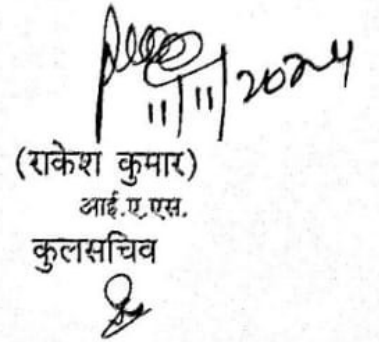 11/11/2024
(राकेश कुमार)
आई.ए.एस.
कुलसचिव